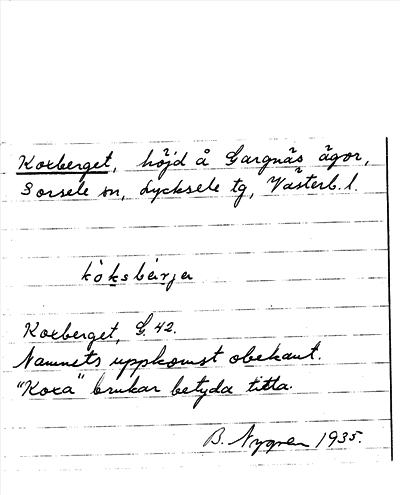 Koxberget, höjd å Gargnäs ägor,
Sorsele sn, Lycksele tg, Västerb. l.
kòksbærje
Koxberget, G. 42.
Namnets uppkomst obekant.
"Koxa" brukar betyda titta.
B. Nygren 1935.